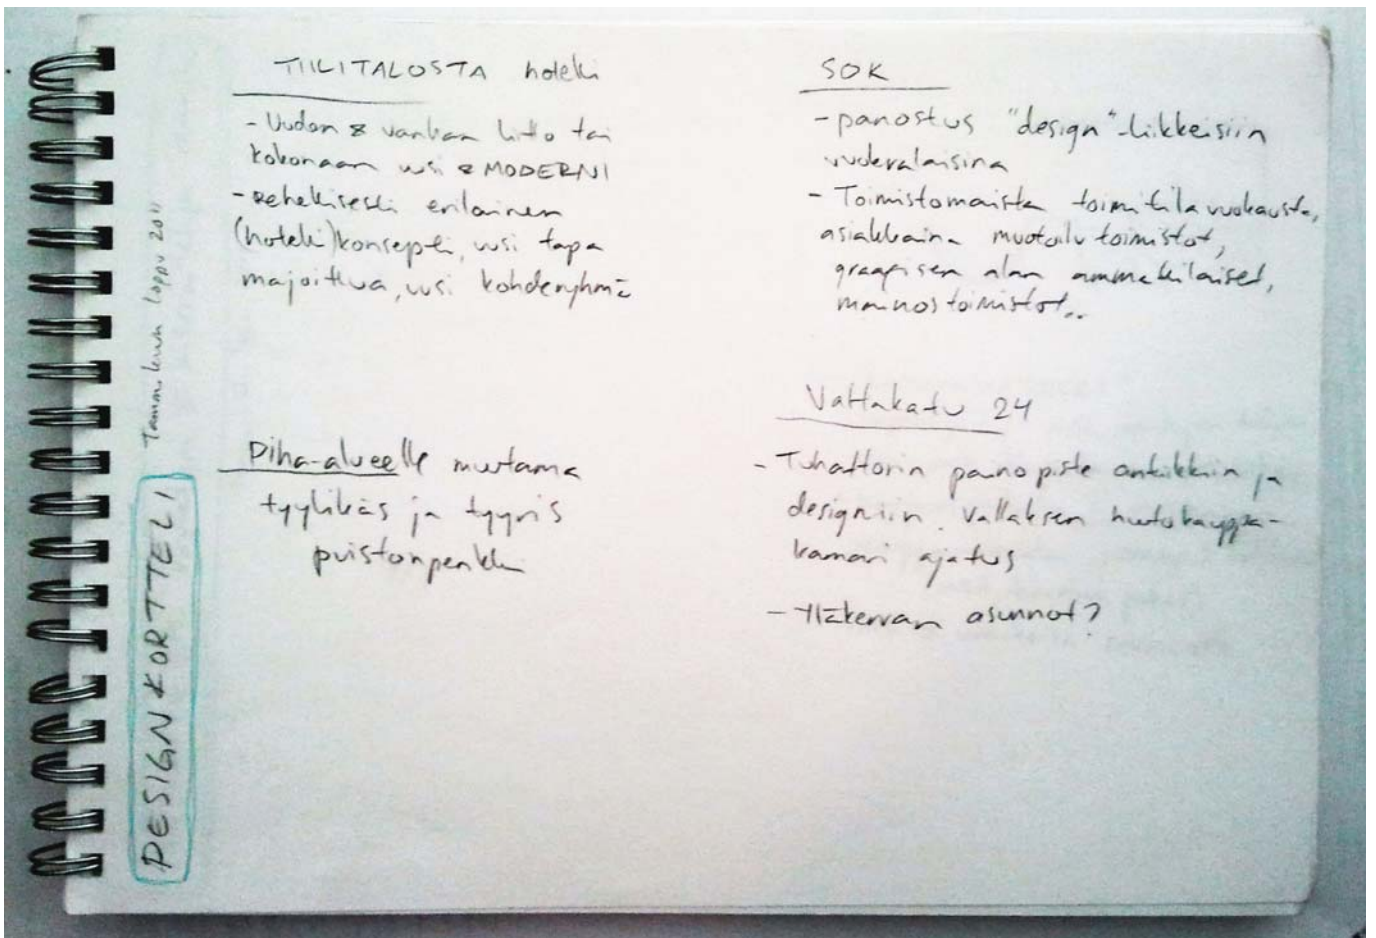 DESIGNKORTTELI Tammikuun loppu 2011
TIILITALOSTA hotelli
- Uuden & vanhan liitto tai
kokonaan uusi & MODERNI
- rehellisesti erilainen
(hotelli)konsepti, uusi tapa
majoittua, uusi kohderyhmä
Piha-alueelle muutama
tyylikäs ja tyyris
puistonpenkki
SOK
- panostus "design"-liikkeisiin
vuokralaisina
- Toimistomaista toimitilavuokausta,
asiakkaina muotoilutoimistot,
graafisen alan ammattilaiset,
mainostoimistot..
Valtakatu 24
- Tuhattorin painopiste antiikkiin ja
designiin. Vallaksen huutokauppa-
kamari ajatus
- Yläkerran asunnot?